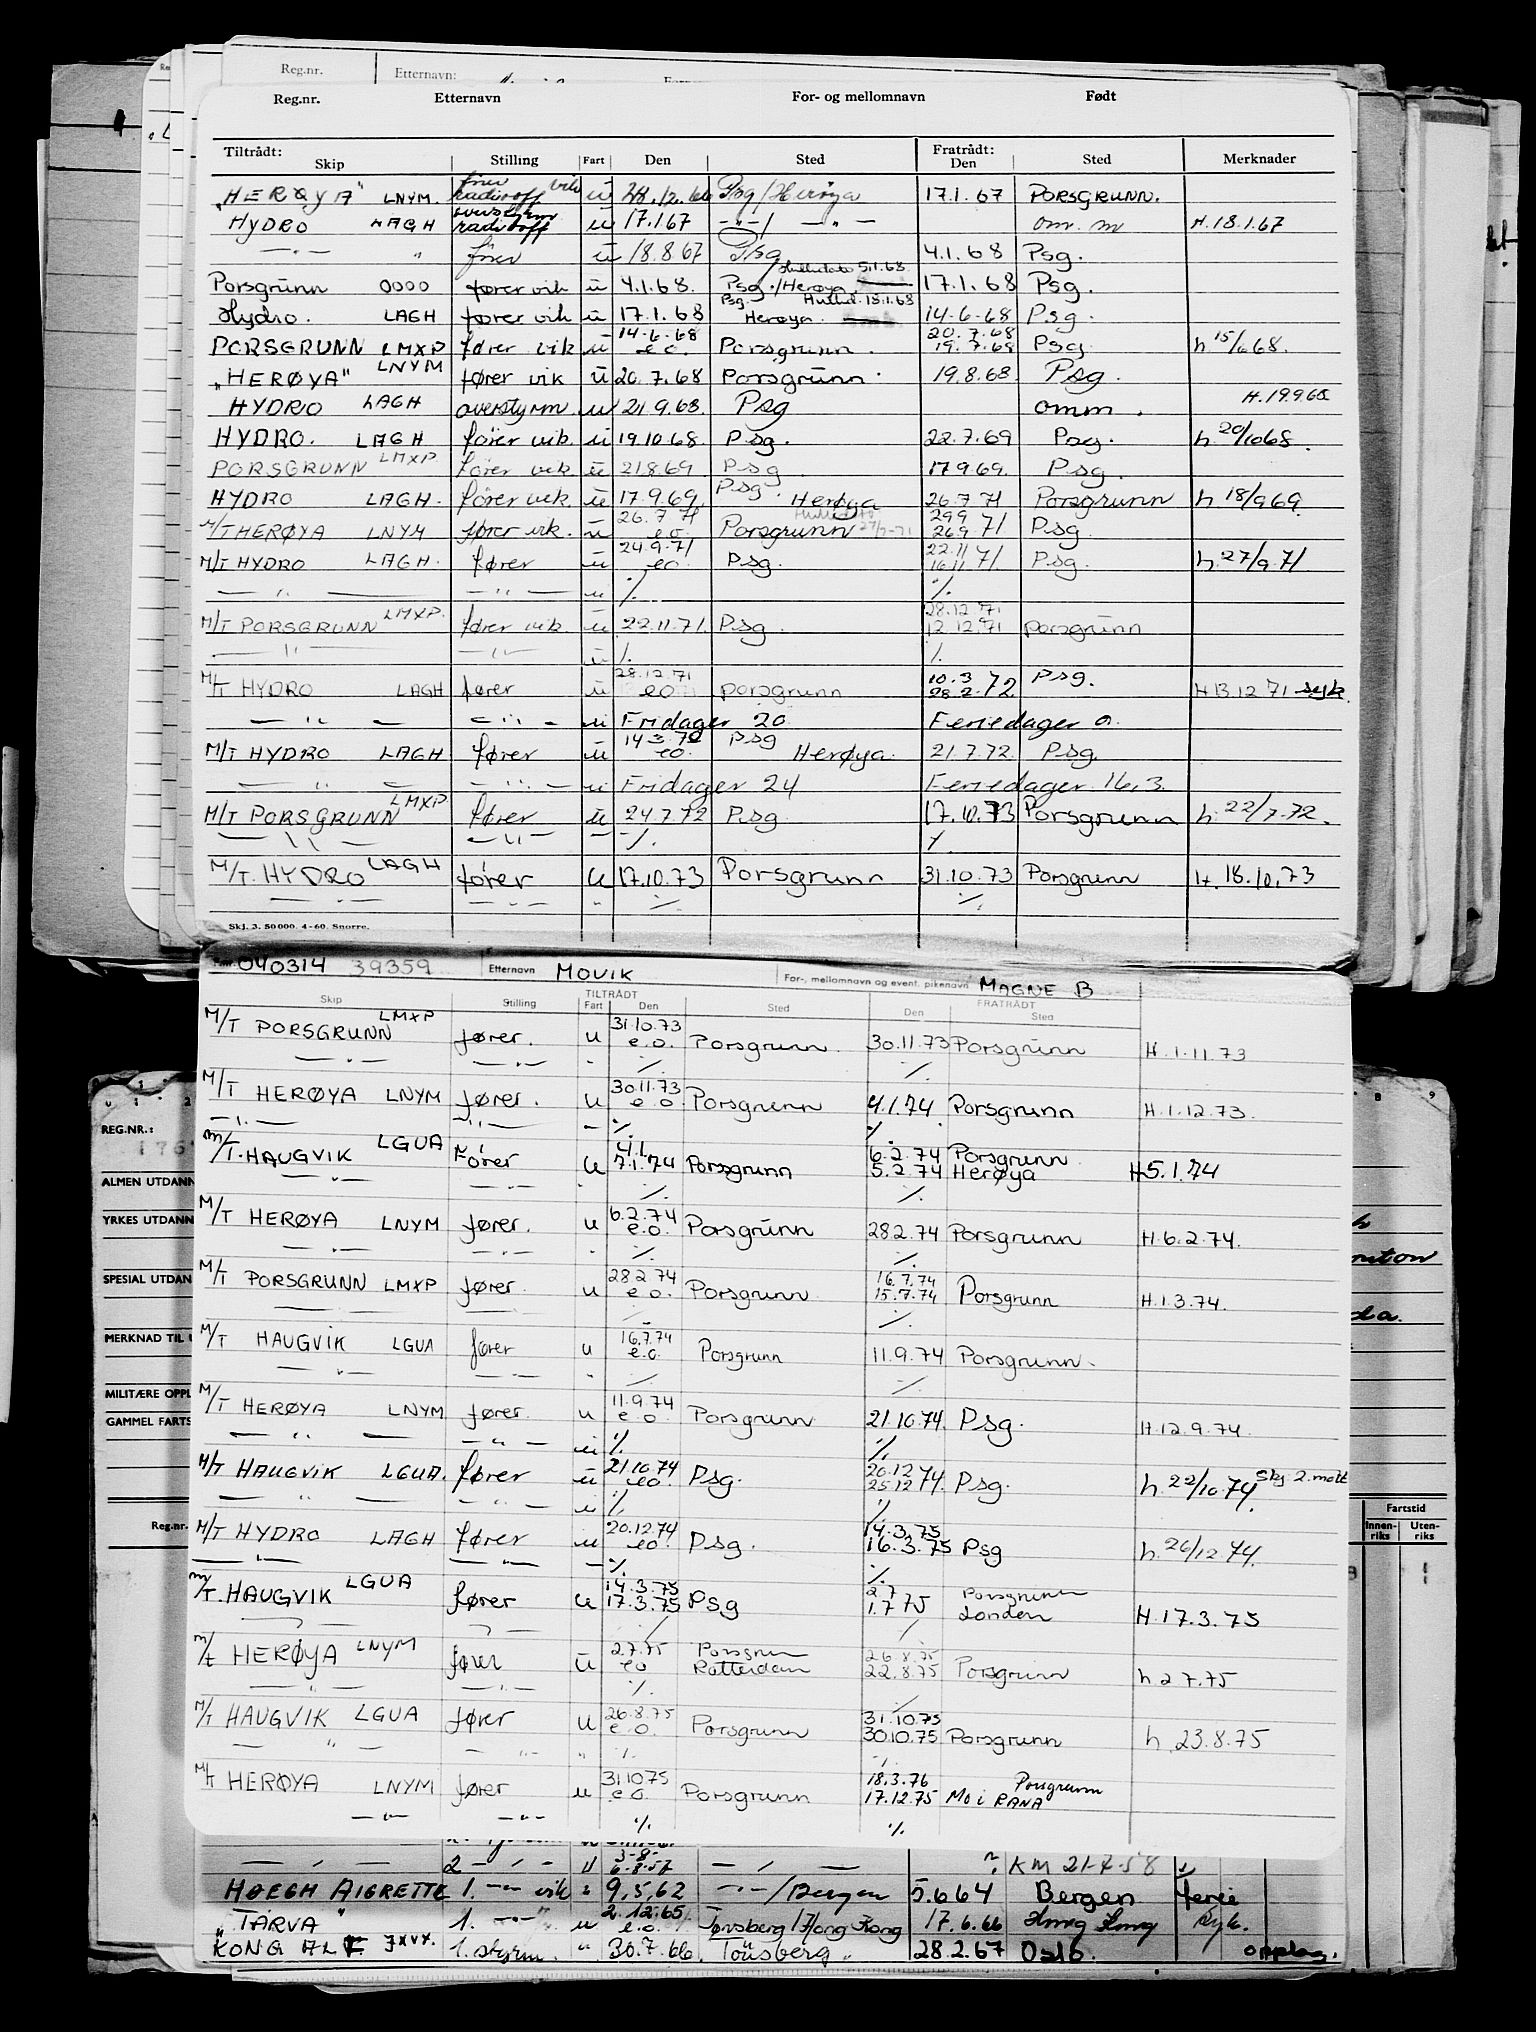 Reg.nr. Etternavn:
Reg.nr. Etternavn For- og mellomnavn Født
Tiltrådt: Skip Stilling Fart Den Sted Fratrådt: Den Sted Merknader
"HERØYA" LNYM. fører vik radiooff u 28.12.66 Psg/Herøya 17.1.67 PORSGRUNN.
HYDRO LAGH overstyrm radiooff u 17.1.67 -"-/ -"- om. m H.18.1.67
-"- " fører u 18.8.67 Psg 4.1.68 Psg.
Porsgrunn OOOO fører vik u 4.1.68. Psg./Herøya Hulldato 5.1.68. 17.1.68 Psg.
Hydro. LAGH fører vik u 17.1.68 Psg. Herøya. Hulld. 18.1.68 14-6-68 Psg.
PORSGRUNN LMXP fører vik u 14-6-68 e.o. Porsgrunn. 20.7.68 19.7.68 Psg h 15/6 68.
"HERØYA" LNYM fører vik u 20.7.68 Porsgrunn. 19.8.68. Psg.
HYDRO LAGH overstyrm. u 21.9.68. Psg omm. H.19.9.68
HYDRO. LAGH fører vik. u 19.10.68. Psg. 22.7.69 Psg. h 20/10 68.
PORSGRUNN LMXP fører vik u 21.8.69 Psg. 17.9.69. Psg.
HYDRO LAGH. fører vik. u 17.9.69. Psg. Herøya 26.7.71 Porsgrunn h 18/9 69.
M/T HERØYA LNYM fører vik. u 26.7.71 e.o. Porsgrunn 27/7-71 29.9 26.9 71 Psg.
M/T HYDRO LAGH. fører u 24.9.71 e.o. Psg. 22.11 16.11 71. Psg. h. 27/9.71
-"- -"- u ./. ./.
M/T PORSGRUNN LMXP. fører vik. u 22.11.71. Psg. 28.12.71 12.12.71 porsgrunn
-"- -"- u ./. ./.
M/T HYDRO LAGH fører u 28.12.71 e.o. porsgrunn 10.3 28.2.72 Psg. H 13.12.71 syk
-"- -"- u Fridager 20 Feriedager 0.
M/T HYDRO LAGH fører u 14.3.72 e.o. Psg Herøya. 21.7.72. Psg.
-"- -"- u Fridager 24 Feriedager 16,3.
M/T PORSGRUNN LMXP fører u 24.7.72 Psg. 17.10.73 Porsgrunn h. 22/7-72.
-"- -"- - ./. ./.
M/T. HYDRO LAGH fører u 17.10.73 Porsgrunn 31.10.73 Porsgrunn H. 18.10.73
-"- -"- " ./. ./.
Skj. 3. 50 000. 4-60. Snorre.
040314 39359 Etternavn MOVIK For-, mellomnavn og event. pikenavn MAGNE B
Skip Stilling TILTRÅDT Fart Den Sted FRATRÅDT Den Sted
M/T PORSGRUNN LMXP fører. u 31.10.73 e.o. Porsgrunn. 30.11.73 Porsgrunn H.1.11.73
-"- -"- " ./. ./.
M/T HERØYA LNYM fører. u 30.11.73 e.o Porsgrunn 4.1.74 Porsgrunn H.1.12.73.
-"- -"- - ./. ./.
M/T. HAUGVIK LGUA Fører u 4.1. 7.1.74 Porsgrunn 6.2.74 5.2.74 Porsgrunn Herøya H 5.1.74
-"- -"- ./. ./.
M/T HERØYA LNYM fører. u 6.2.74 e.o. Porsgrunn 28.2.74 Porsgrunn H.6.2.74.
-"- -"- " ./. ./.
M/T PORSGRUNN LMXP fører. u 28.2.74 e.o. Porsgrunn 16.7.74 15.7.74 Porsgrunn H.1.3.74.
./. ./.
M/T HAUGVIK LGUA fører u 16.7.74 e.o. Porsgrunn 11.9.74 Porsgrunn.
-"- -"- - ./. ./.
M/T HERØYA LNYM fører. u 11.9.74 e.o. Porsgrunn 21.10.74. Psg. H.12.9.74.
-"- -"- u ./. ./.
M/T HAUGVIK LGUA. fører u 21.10.74 e.o. Psg. 20.12 25.12 74. Psg. h 22/10.74. Skj 2. mott
-"- -"- u ./. ./.
M/T HYDRO LAGH fører u 20.12.74 e.o. Psg. 14.3.75 16.3.75 Psg h 26/12 74.
-"- -"- - ./. ./.
M/T. HAUGVIK LGUA fører u 14.3.75 17.3.75 Psg 2.7 1.7 75 Porsgrunn London H.17.3.75
M/T HERØYA LNYM fører u 2.7.75 e.o Porsgrun Rotterdam 26.8.75 22.8.75 Porsgrunn h 2.7.75
-"- -"- ./. ./.
M/T HAUGVIK LGUA fører u 26.8.75 e.o. Porsgrunn 31.10.75 30.10.75 Porsgrunn h. 23.8.75
-"- -"- " ./. ./.
M/T HERØYA LNYM fører u 31.10.75 e.o. Porsgrunn 18.3.76 17.12.75 Porsgrunn Mo i RANA
-"- -"- ./. ./.
REG.NR.:
ALMEN UTDANN
YRKES UTDANN
SPESIAL UTDAN
MERKNAD TIL U
MILITÆRE OPPL
GAMMEL FARTS
Reg.nr.
Fartstid
Innenriks Utenriks
-"- 2 -"- u 3-8- 6-8-57 -"- ? KM 21-7-58
HØEGH AIGRETTE 1. -"- vik " 9,5,62 -"-/Bergen 5.6.64 Bergen ferie
"TARVA" 1. -"- u 2.12.65 e.o. Tønsberg/Hong Kong 17.6.66 Hong Kong Syk.
KONG ALF JXVX. 1. styrm. " 30.7.66. Tønsberg 28.2.67 Oslo. opplag.